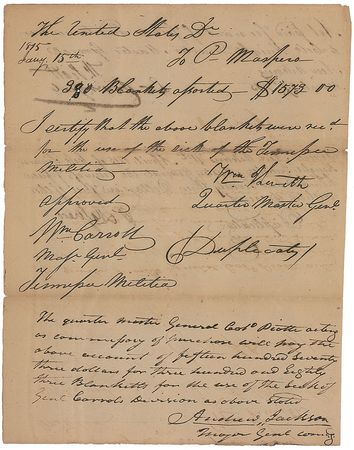 The United States Dr
1815
Jany. 15th To P. Maspero
380 Blankets assorted $1573 00
I certify that the above blankets were recd.
for the use of the sick of the Tennessee
Militia
approved Quarter Master Genl.
Wm Carroll
Majr Genl. (Duplicate)
Tennessee Militia
The quarter master General Colo. Piatt acting
as commissary of purchases will pay the
above account of fifteen hundred seventy
three dollars for three hundred and Eighty
three Blanketts for the use of the Sick of
Genl Carrols Division as above Stated
Andrew Jackson
Major Genl comdg